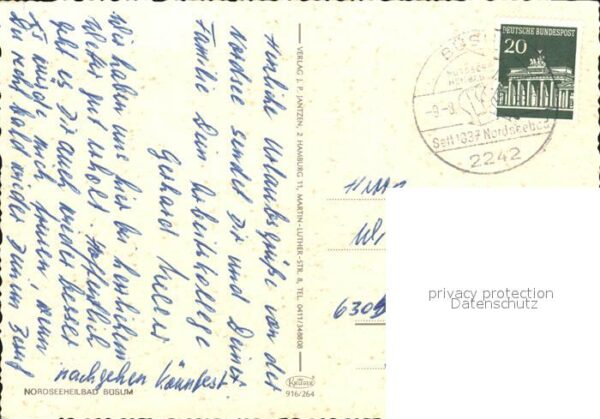 Herzliche Urlaubsgrüße von der
Nordsee sendet Dir und Deiner
Familie Dein Arbeitskollege
Gerhardt
Wir haben uns hier bei herrlichem
Wetter gut erholt. Hoffentlich
geht es Dir auch wieder besser
Es würde mich freuen, wenn
Du recht bald wieder Deinem
nachgehen könntest.
NORDSEEHEILBAD BÜSUM
VERLAG J. P. JANTZEN, 2 HAMBURG 11, MARTIN-LUTHER-STR. 8, TEL. 0411/348808
Krüger
916/264
DEUTSCHE BUNDESPOST
20
Seit 1837 Nordseebad
2242
privacy protection
Datenschutz